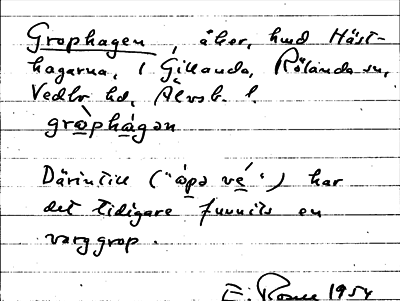 Grophagen, åker, hmd Häst-
hagarna, 1 Gillanda, Rölanda sn,
Vedbo hd, Älvsb. l.
gròphágan
Därintill ("ápə vé") har
det tidigare funnits en
varggrop.
E. 1954